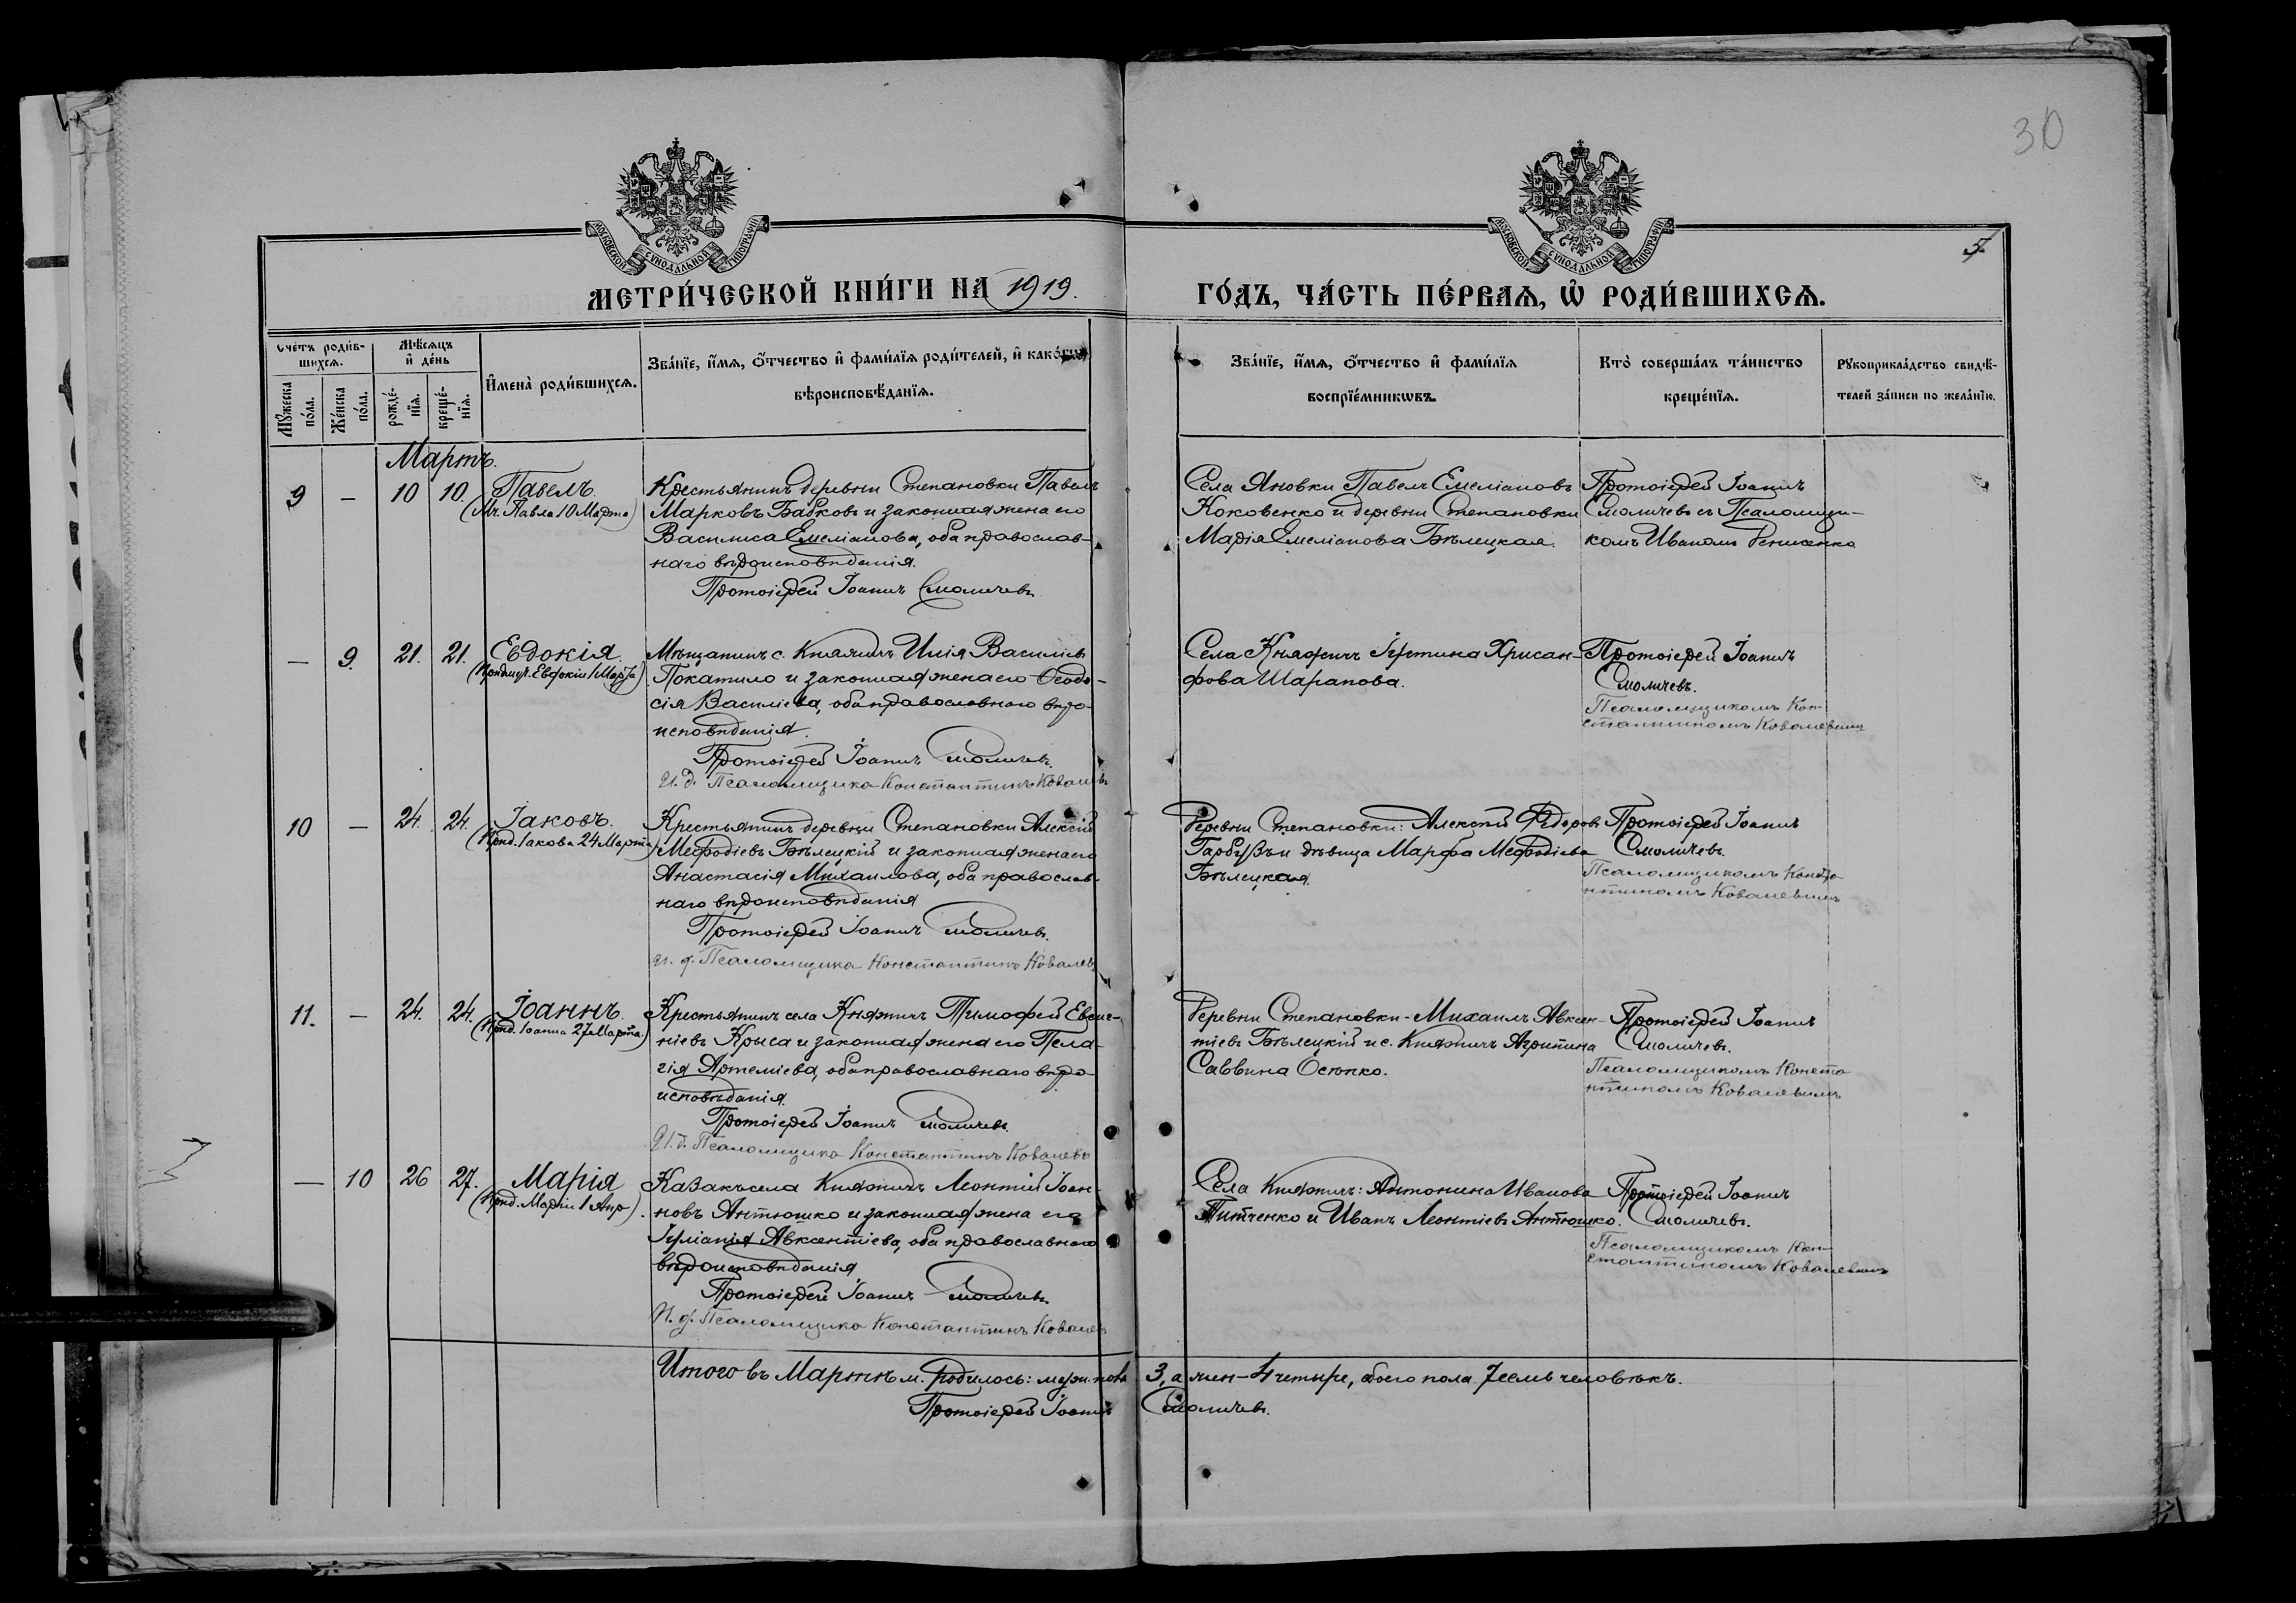 30
5
МОСКОВСКОЙ СѴНОДАЛЬНОЙ ТИПОГРАФІИ
МОСКОВСКОЙ СѴНОДАЛЬНОЙ ТИПОГРАФІИ
МЕТРИ́ЧЕСКОЙ КНИ́ГИ НА 1919. ГО́ДЪ, ЧА́СТЬ ПЕ́РВАѦ, Ѡ҆ РОДИ́ВШИХСѦ.
Сче́тъ роди́в-
шихсѧ.
Мꙋ́жеска по́ла.
Же́нска по́ла.
Мѣ́сѧцъ и҆ де́нь
рожде́-
нїѧ.
креще́-
нїѧ.
И҆мена̀ роди́вшихсѧ.
Зва́нїе, и҆́мѧ, о҆́тчество и҆ фами́лїѧ роди́телей, и҆ како́гѡ
вѣроисповѣ́данїѧ.
Зва́нїе, и҆́мѧ, о҆́тчество и҆ фами́лїѧ
воспрїе́мникѡвъ.
Кто̀ соверша́лъ та́инство
креще́нїѧ.
Рꙋкоприкла́дство свидѣ́-
телей за́писи по жела́нїю.
Мартъ.
9 — 10 10. Павелъ.
(Мч. Павла 10 Марта)
Крестьянинъ деревни Степановки Павелъ
Марковъ Бабковъ и законная жена его
Василиса Емеліанова, оба православ-
наго вѣроисповѣданія.
Протоіерей Іоаннъ Смоличевъ
Села Яновки Павелъ Емеліановъ
Коковенко и деревни Степановки
Марія Емеліанова Бѣлецкая.
Протоіерей Іоаннъ
Смоличевъ съ Псаломщи-
комъ Иваномъ Денисенко
— 9. 21. 21. Евдокія.
(Прпдмуч. Евдокіи 1 Марта)
Мѣщанинъ с. Княжичъ Илія Василіевъ
Покатило и законная жена его Ѳеодо-
сія Василіева, оба православнаго вѣро-
исповѣданія.
Протоіерей Іоаннъ Смоличевъ.
И. д. Псаломщика Константинъ Ковалевъ
Села Княжичъ Іустина Хрисан-
фова Шарапова.
Протоіерей Іоаннъ
Смоличевъ.
Псаломщикомъ Кон-
стантиномъ Ковалевымъ
10 — 24. 24. Іаковъ.
(Прпд. Іакова 24 Марта)
Крестьянинъ деревни Степановки Алексій
Мефодіевъ Бѣлецкій и законная жена его
Анастасія Михаилова, оба православ-
наго вѣроисповѣданія
Протоіерей Іоаннъ Смоличевъ.
И. д. Псаломщика Константинъ Ковалевъ
Деревни Степановки: Алексѣй Ѳедоровъ
Гарбузъ и дѣвица Марфа Мефодіева
Бѣлецкая.
Протоіерей Іоаннъ
Смоличевъ.
Псаломщикомъ Конста-
нтиномъ Ковалевымъ
11. — 24. 24. Іоаннъ.
(Прпд. Іоанна 27 Марта.)
Крестьянинъ села Княжичъ Тимофей Евсе-
ніевъ Крыса и законная жена его Пела-
гія Артеміева, оба православнаго вѣро-
исповѣданія.
Протоіерей Іоаннъ Смоличевъ.
И. д. Псаломщика Константинъ Ковалевъ
Деревни Степановки - Михаилъ Авксен-
тіевъ Бѣлецкій и с. Княжичъ Агрипина
Саввина Осипко.
Протоіерей Іоаннъ
Смоличевъ.
Псаломщикомъ Конста
нтиномъ Ковалевымъ
— 10 26 27. Марія
(Прпд. Маріи 1 Апр)
Казакъ села Княжичъ Леонтій Іоан-
новъ Антюшко и законная жена его
Іуліанія Авксентіева, оба православнаго
вѣроисповѣданія
Протоіерей Іоаннъ Смоличевъ
И. д. Псаломщика Константинъ Ковалевъ
Села Княжичъ: Антонина Иванова
Титченко и Иванъ Леонтіевъ Антюшко.
Протоіерей Іоаннъ
Смоличевъ.
Псаломщикомъ Кон-
стантиномъ Ковалевымъ
Итого въ Мартѣ м. родилось: муж. пола 3, а жен - 4 четыре, обоего пола 7 семь человѣкъ.
Протоіерей Іоаннъ Смоличевъ.